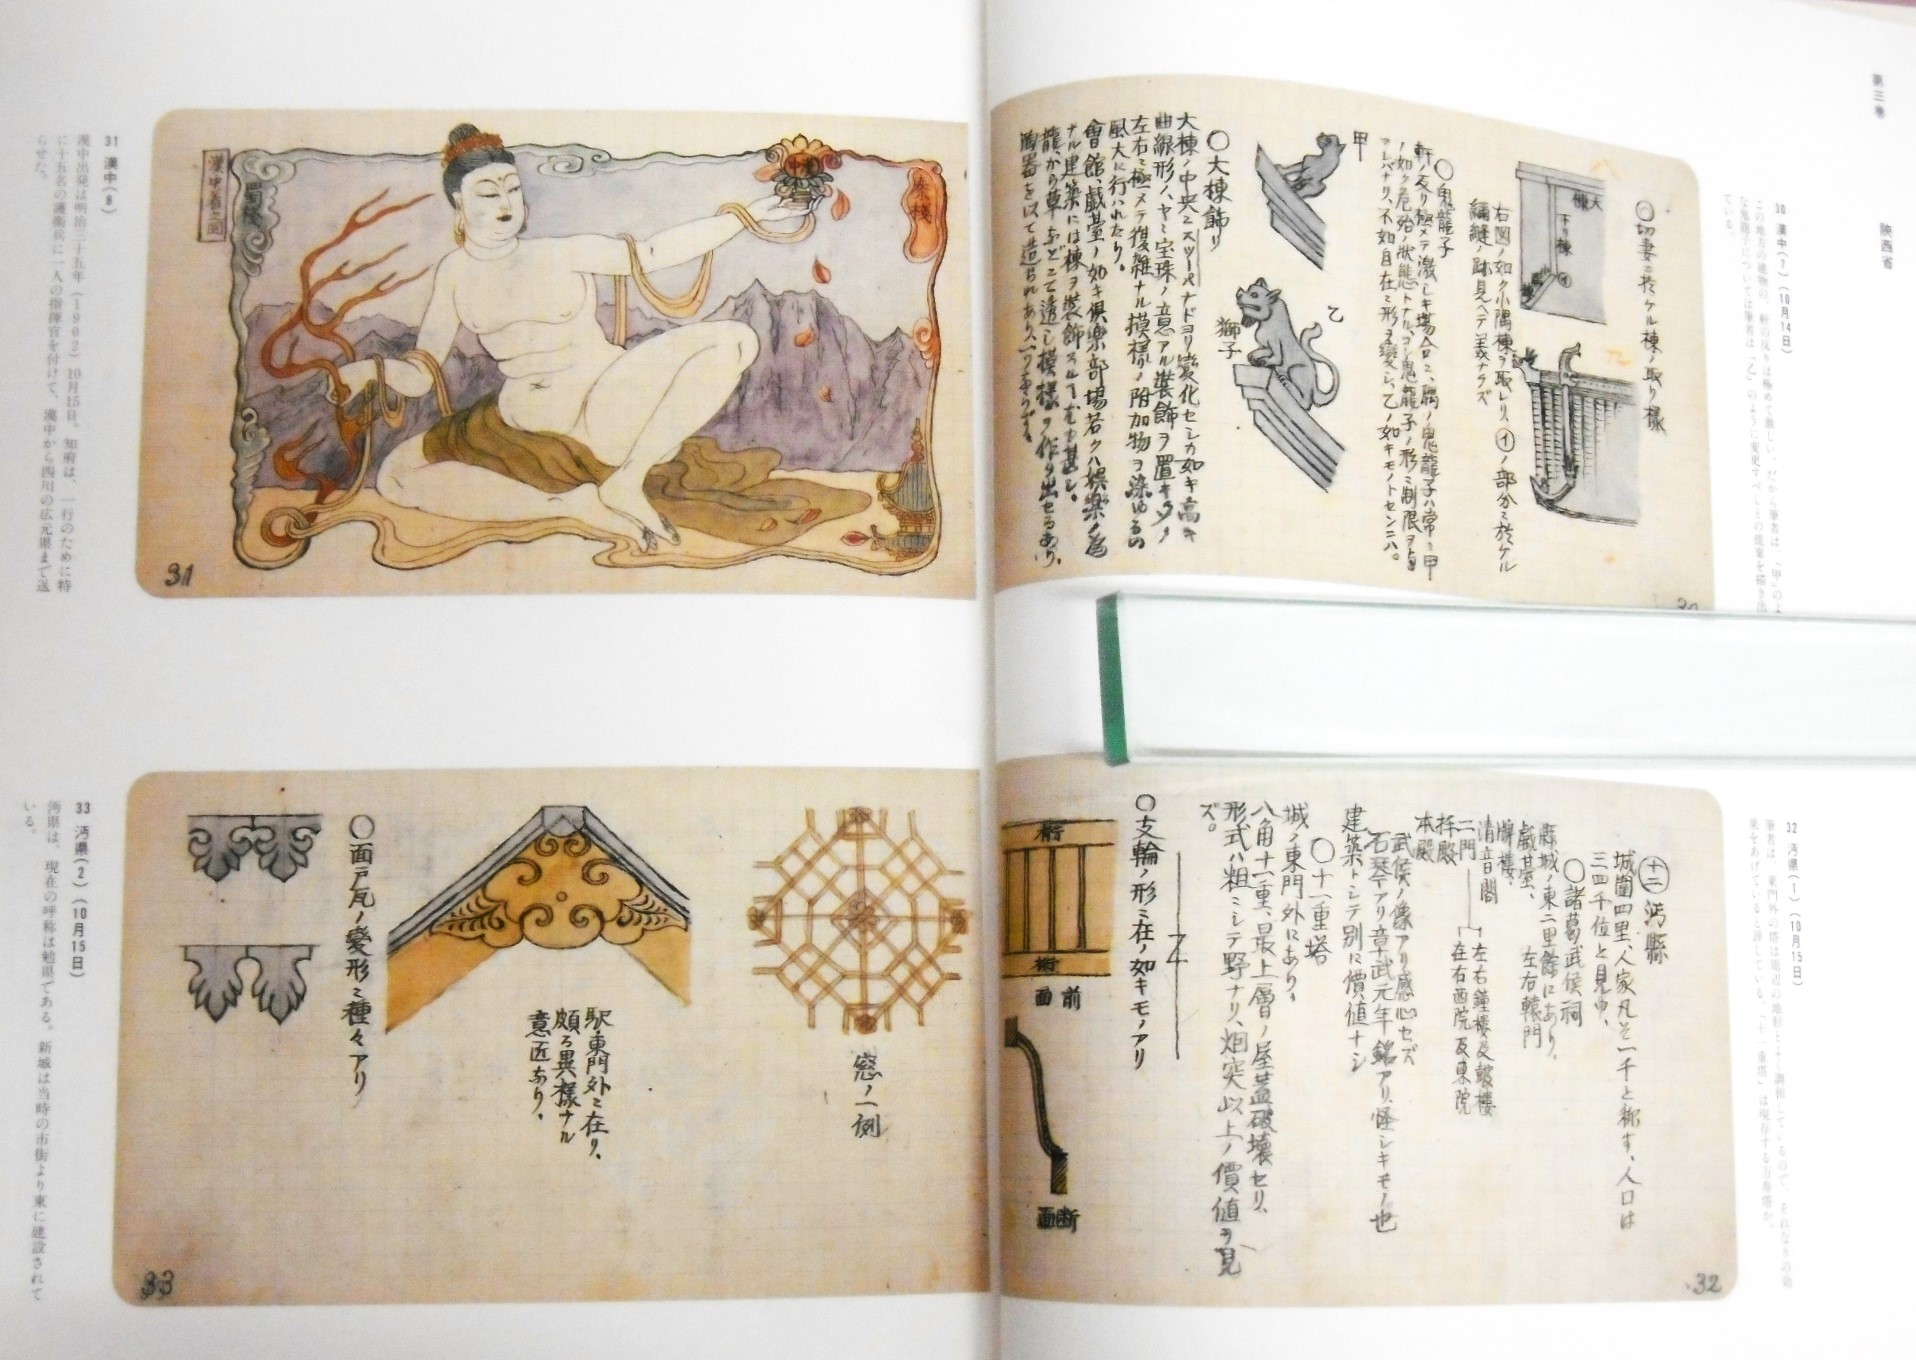 第三巻
陝西省
30 漢中(7)(10月14日)
この地方の建物の、軒の反りは極めて激しい。だから筆者は、「甲」のよ
うな鬼龍子については筆者は「乙」のように変更すべしとの提案を描き出し
ている。
〇切妻ニ於ケル棟ノ取リ様
大棟
下リ棟
イ
右図ノ如ク小隅棟ヲ取レリ、イノ部分ニ於ケル
彌縫ノ跡見ヘテ美ナラズ
〇鬼龍子
軒ノ反リ極メテ激シキ場合ニ、隅ノ鬼龍子ハ常ニ甲
ノ如ク危殆ノ状態トナル、コレ鬼龍子ノ形ニ制限ヲ
アレバナリ、不如自在ニ形ヲ變シ、乙ノ如キモノトセンニハ。
甲
乙
獅子
〇大棟飾リ
大棟ノ中央ニスツーパナドヨリ變化セシカ如キ高キ
曲線形ノ、ヤヽ宝珠ノ意アル装飾ヲ置キ
左右ニ極メテ複雑ナル模様ノ附加物ヲ
風大に行ハれたり。
會館、戯基堂ノ如キ倶楽部場若クハ娯楽ノ為
ナル建築には棟ヲ装飾スル
龍、から草などニて透シ模様ヲ作り出せるあり、
陶器を以て造られあり
31 漢中(8)
漢中出発は明治三十五年(1902)10月15日。知府は、一行のために特
に十五名の護衛兵に一人の指揮官を付けて、漢中から四川の広元県まで送
らせた。
秦棧
漢中
蜀棧
漢中省之図
31
32 沔県(1)(10月15日)
筆者は、東門外の塔は周辺の地形とよく調和しているので、それなりの効
果をあげていると評している。「十一重塔」は現存する万寿塔か。
十二 沔縣
城圍四里、人家凡そ一千と称す、人口は
三四千位と見ゆ、
〇諸葛武侯祠
縣城ノ東二里餘にあり、
戯基堂、 左右轅門
牌樓、
清音閣 左右鐘樓及皷樓
二門 在右西院及東院
拝殿
本殿
武侯ノ像アリ感心セズ
石琴アリ章武元年銘アリ、怪シキモノ也
建築トシテ別に價値ナシ
〇十一重塔
城ノ東門外にあり、
八角十一重、最上層ノ屋蓋破壊セリ、
形式ハ粗ニシテ野ナリ、烟突以上ノ價値ヲ見
ズ。
〇支輪ノ形ニ在ノ如キモノアリ
桁
桁
前面
断面
32
33 沔県(2)(10月15日)
沔県は、現在の呼称は勉県である。新城は当時の市街より東に建設されて
いる。
窓ノ一例
駅ノ東門外ニ在リ、
頗る異様ナル
意匠あり、
〇面戸瓦ノ變形ニ種々アリ
33